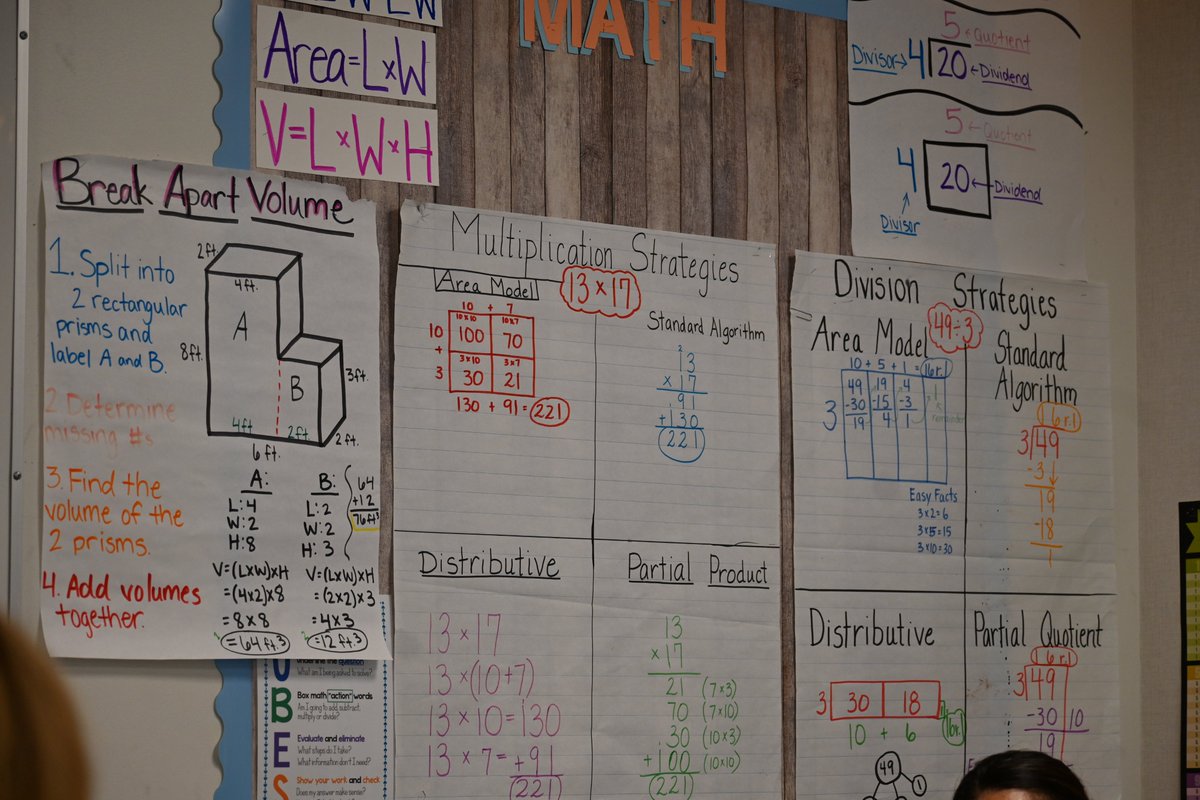 MATH
Area=LxW
V=LxWxH
5 ←Quotient
Divisor→ 4 20 ←Dividend
5 ←Quotient
4 20 ←Dividend
Divisor
Break Apart Volume
1. Split into
2 rectangular
prisms and
label A and B.
2. Determine
missing #s
3. Find the
volume of the
2 prisms.
4. Add volumes
together.
2ft.
4ft.
A
8ft.
B
3ft.
4ft. 2ft.
2ft.
6ft.
A:
L:4
W:2
H:8
V=(LxW)xH
=(4x2)x8
=8x8
=64ft.³
B:
L:2
W:2
H:3
V=(LxW)xH
=(2x2)x3
=4x3
=12ft.³
64
+12
76ft³
Multiplication Strategies
13 x 17
Area Model
10 + 7
10x10 10x7
10 100 70
+ 3x10 3x7
3 30 21
130 + 91 = 221
Standard Algorithm
2
13
x 17
91
+130
221
Distributive
13 x 17
13 x (10+7)
13 x 10 = 130
13 x 7 = +91
221
Partial Product
13
x 17
21 (7x3)
70 (7x10)
30 (10x3)
+100 (10x10)
221
Division Strategies
49÷3
Area Model
10 + 5 + 1 = 16 r.1
3
49 19 4
-30 -15 -3
19 4 1
remainder
Easy Facts
3x2=6
3x15=15
3x10=30
Standard
Algorithm
16 r.1
3 49
-3↓
19
-18
1
Distributive
3 30 18
10 + 6
16r.1
49
1
Partial Quotient
16 r.1
3 49
-30 10
19
U underline the question
What am I being asked to solve?
B Box math "action" words
Am I going to add, subtract,
multiply or divide?
E Evaluate and eliminate
What steps do I take?
What information don't I need?
S Show your work and check
Does my answer make sense?